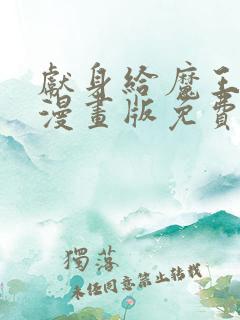 獻身給魔王
漫畫版免費
獨落
未經同意禁止轉載